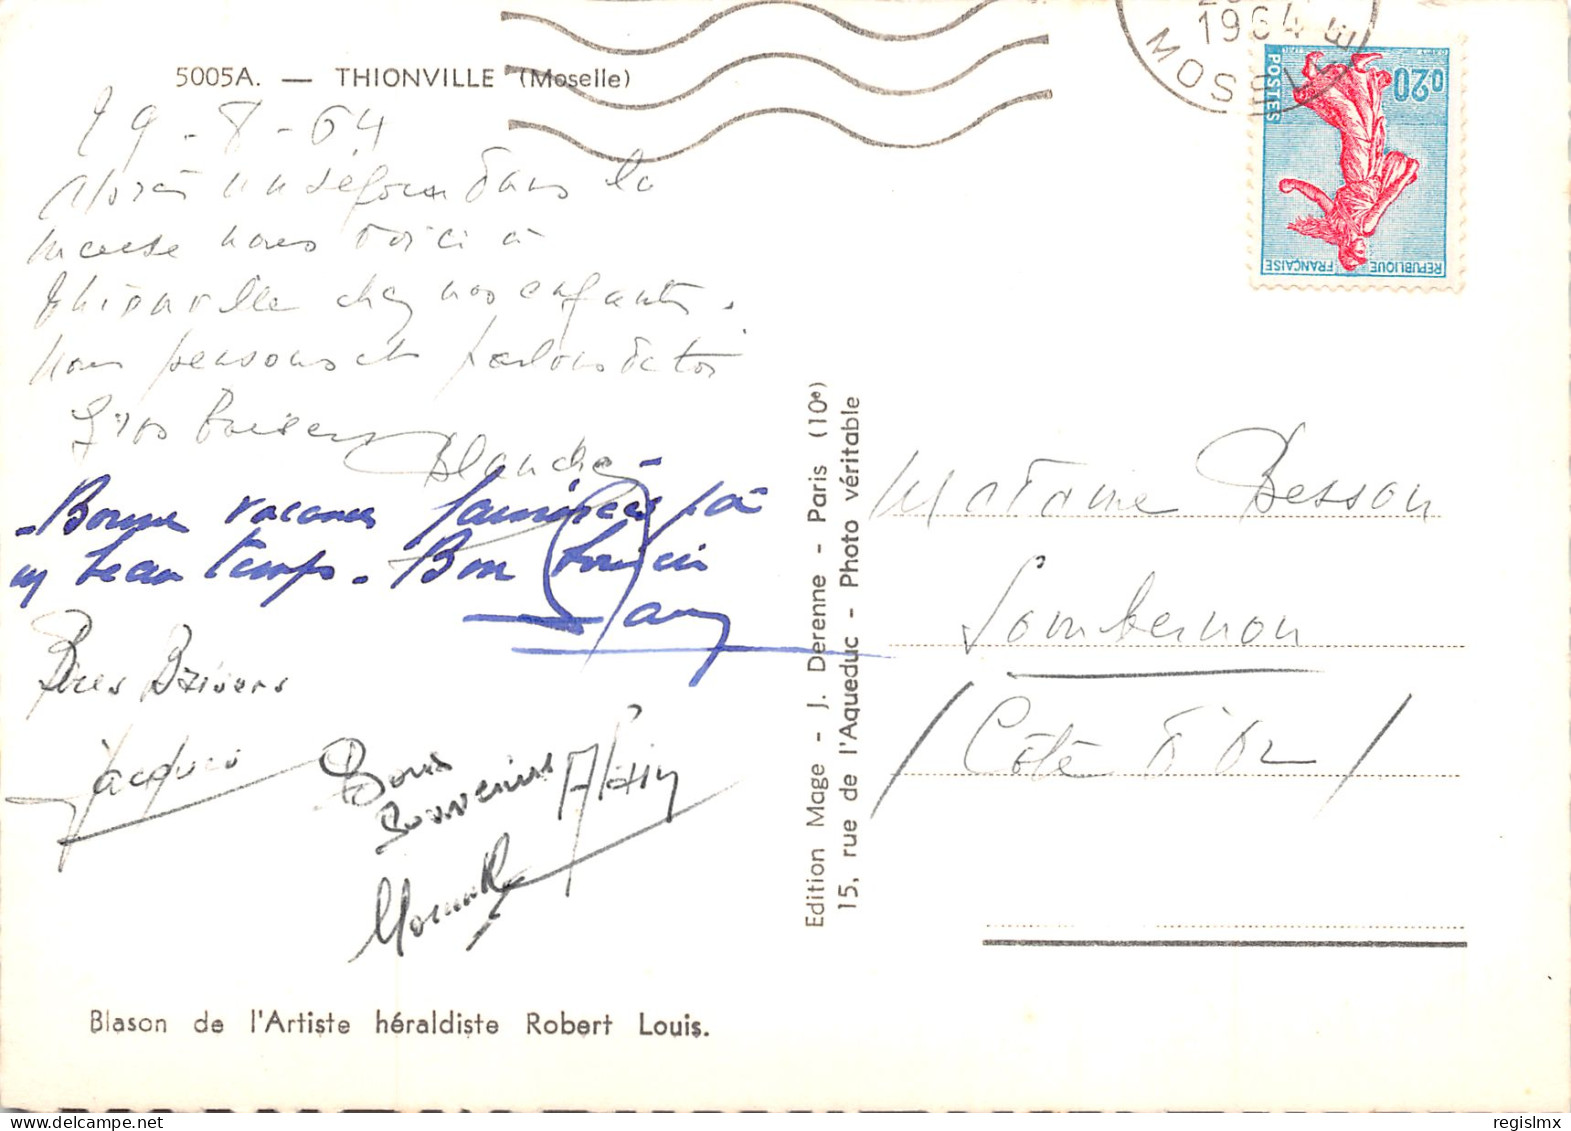 5005A. — THIONVILLE (Moselle)
29-8-64
Après un séjour dans la
nous voici à
Thionville chez nos enfants.
Nous pensons et parlons de toi
Gros baisers Blanche
- Bonne vacances
beau temps. Bon
Bons Baisers
Jacques
Bons
Souvenirs Alain
Blason de l'Artiste héraldiste Robert Louis.
Edition Mage - J. Derenne - Paris (10e)
15, rue de l'Aqueduc - Photo véritable
1964
MOSELLE
0,20
POSTES
REPUBLIQUE FRANÇAISE
Madame Besson
Sombernon
(Côte d'Or)
regislmx